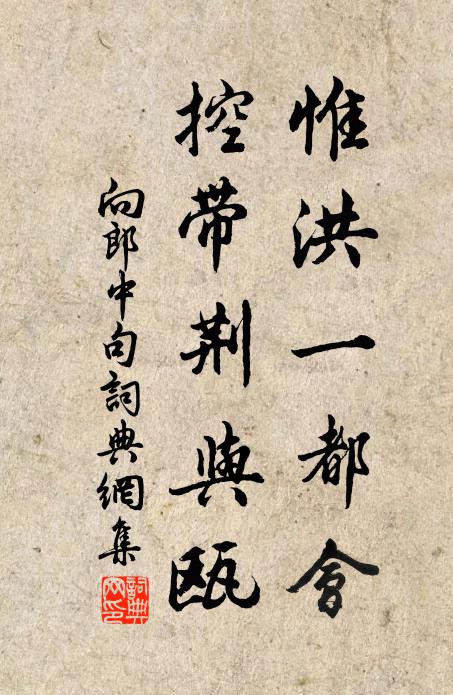 惟洪一都會
控帶荆與甌
向郎中句詞典網集
詞典
网印